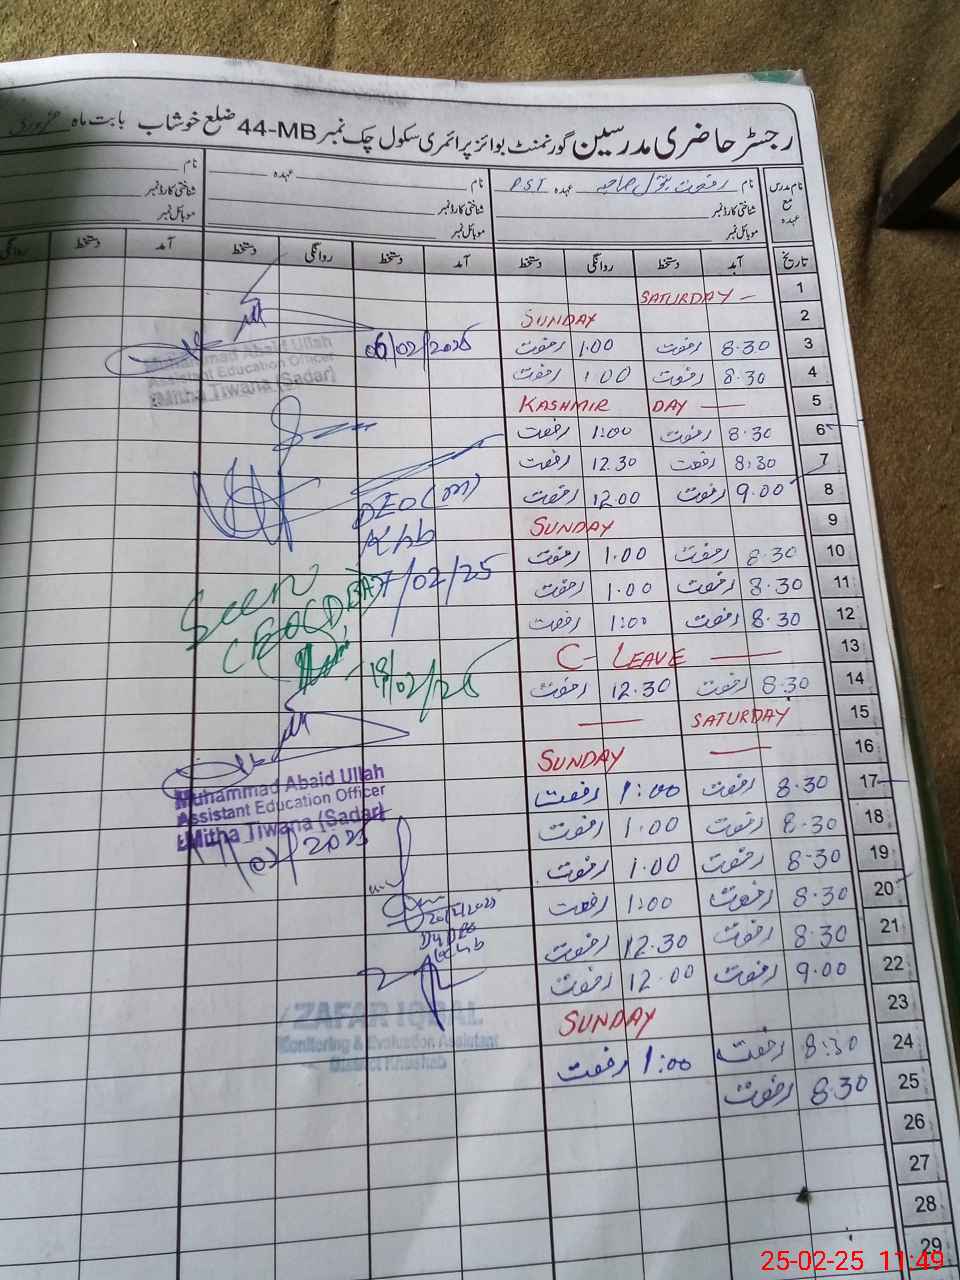 رجسٹر حاضری مدرسین گورنمنٹ بوائز پرائمری سکول چک نمبر 44-MB ضلع خوشاب بابت ماہ فروری
نام مدرس مع عہدہ
نام رفعت بتول صاحبہ عہدہ PST
شناختی کارڈ نمبر
موبائل نمبر
نام عہدہ
شناختی کارڈ نمبر
موبائل نمبر
نام
شناختی کارڈ نمبر
موبائل نمبر
تاریخ آمد دستخط روانگی دستخط آمد دستخط روانگی دستخط آمد دستخط روانگی
1 SATURDAY -
2 SUNDAY
3 8.30 رفعت 1.00 رفعت
4 8.30 رفعت 1:00 رفعت
5 KASHMIR DAY -
6 8.30 رفعت 1:00 رفعت
7 8:30 رفعت 12.30 رفعت
8 9.00 رفعت 12.00 رفعت
9 SUNDAY
10 8.30 رفعت 1.00 رفعت
11 8.30 رفعت 1:00 رفعت
12 8.30 رفعت 1:00 رفعت
13 C- LEAVE -
14 8.30 رفعت 12.30 رفعت
15 - SATURDAY
16 SUNDAY -
17 8.30 رفعت 1:00 رفعت
18 8.30 رفعت 1:00 رفعت
19 8.30 رفعت 1.00 رفعت
20 8.30 رفعت 1:00 رفعت
21 8.30 رفعت 12.30 رفعت
22 9.00 رفعت 12.00 رفعت
23 SUNDAY
24 8:30 رفعت 1:00 رفعت
25 8.30 رفعت
26
27
28
29
06/02/2025
Muhammad Abaid Ullah
Assistant Education Officer
Mitha Tiwana (Sadar)
DEO (M)
Khb
7/02/25
Seen
CEO (DEA)
18/02/25
Muhammad Abaid Ullah
Assistant Education Officer
Mitha Tiwana (Sadar)
/02/2025
20/2/2025
ZAFAR IQBAL
Monitoring & Evaluation Assistant
District Khushab
25-02-25 11:49